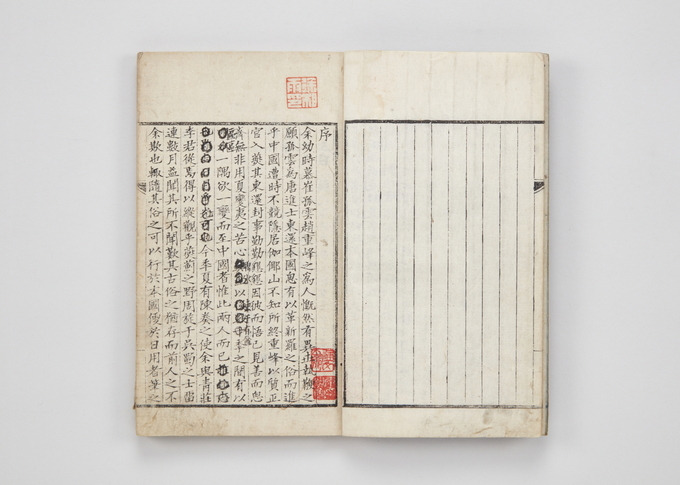 序
余幼時慕崔孤雲趙重峰之爲人慨然有異世執鞭之
願孤雲爲唐進士東還本國思有以革新羅之俗而進
乎中國遭時不競隱居伽倻山不知所終重峰以質正
官入燕其東還封事勤勤懇懇因彼而悟已見善而思
齊無非用夏變夷之苦心鴨水以東千有餘季之間有以
區區一隅欲一變而至中國者惟此兩人而已
今季夏有陳奏之使余與青莊
李君從焉得以縱觀乎燕薊之野周旋于吳蜀之士留
連數月益聞其所不聞歎其古俗之猶存而前人之不
余欺也輒隨其俗之可以行於本國便於日用者筆之